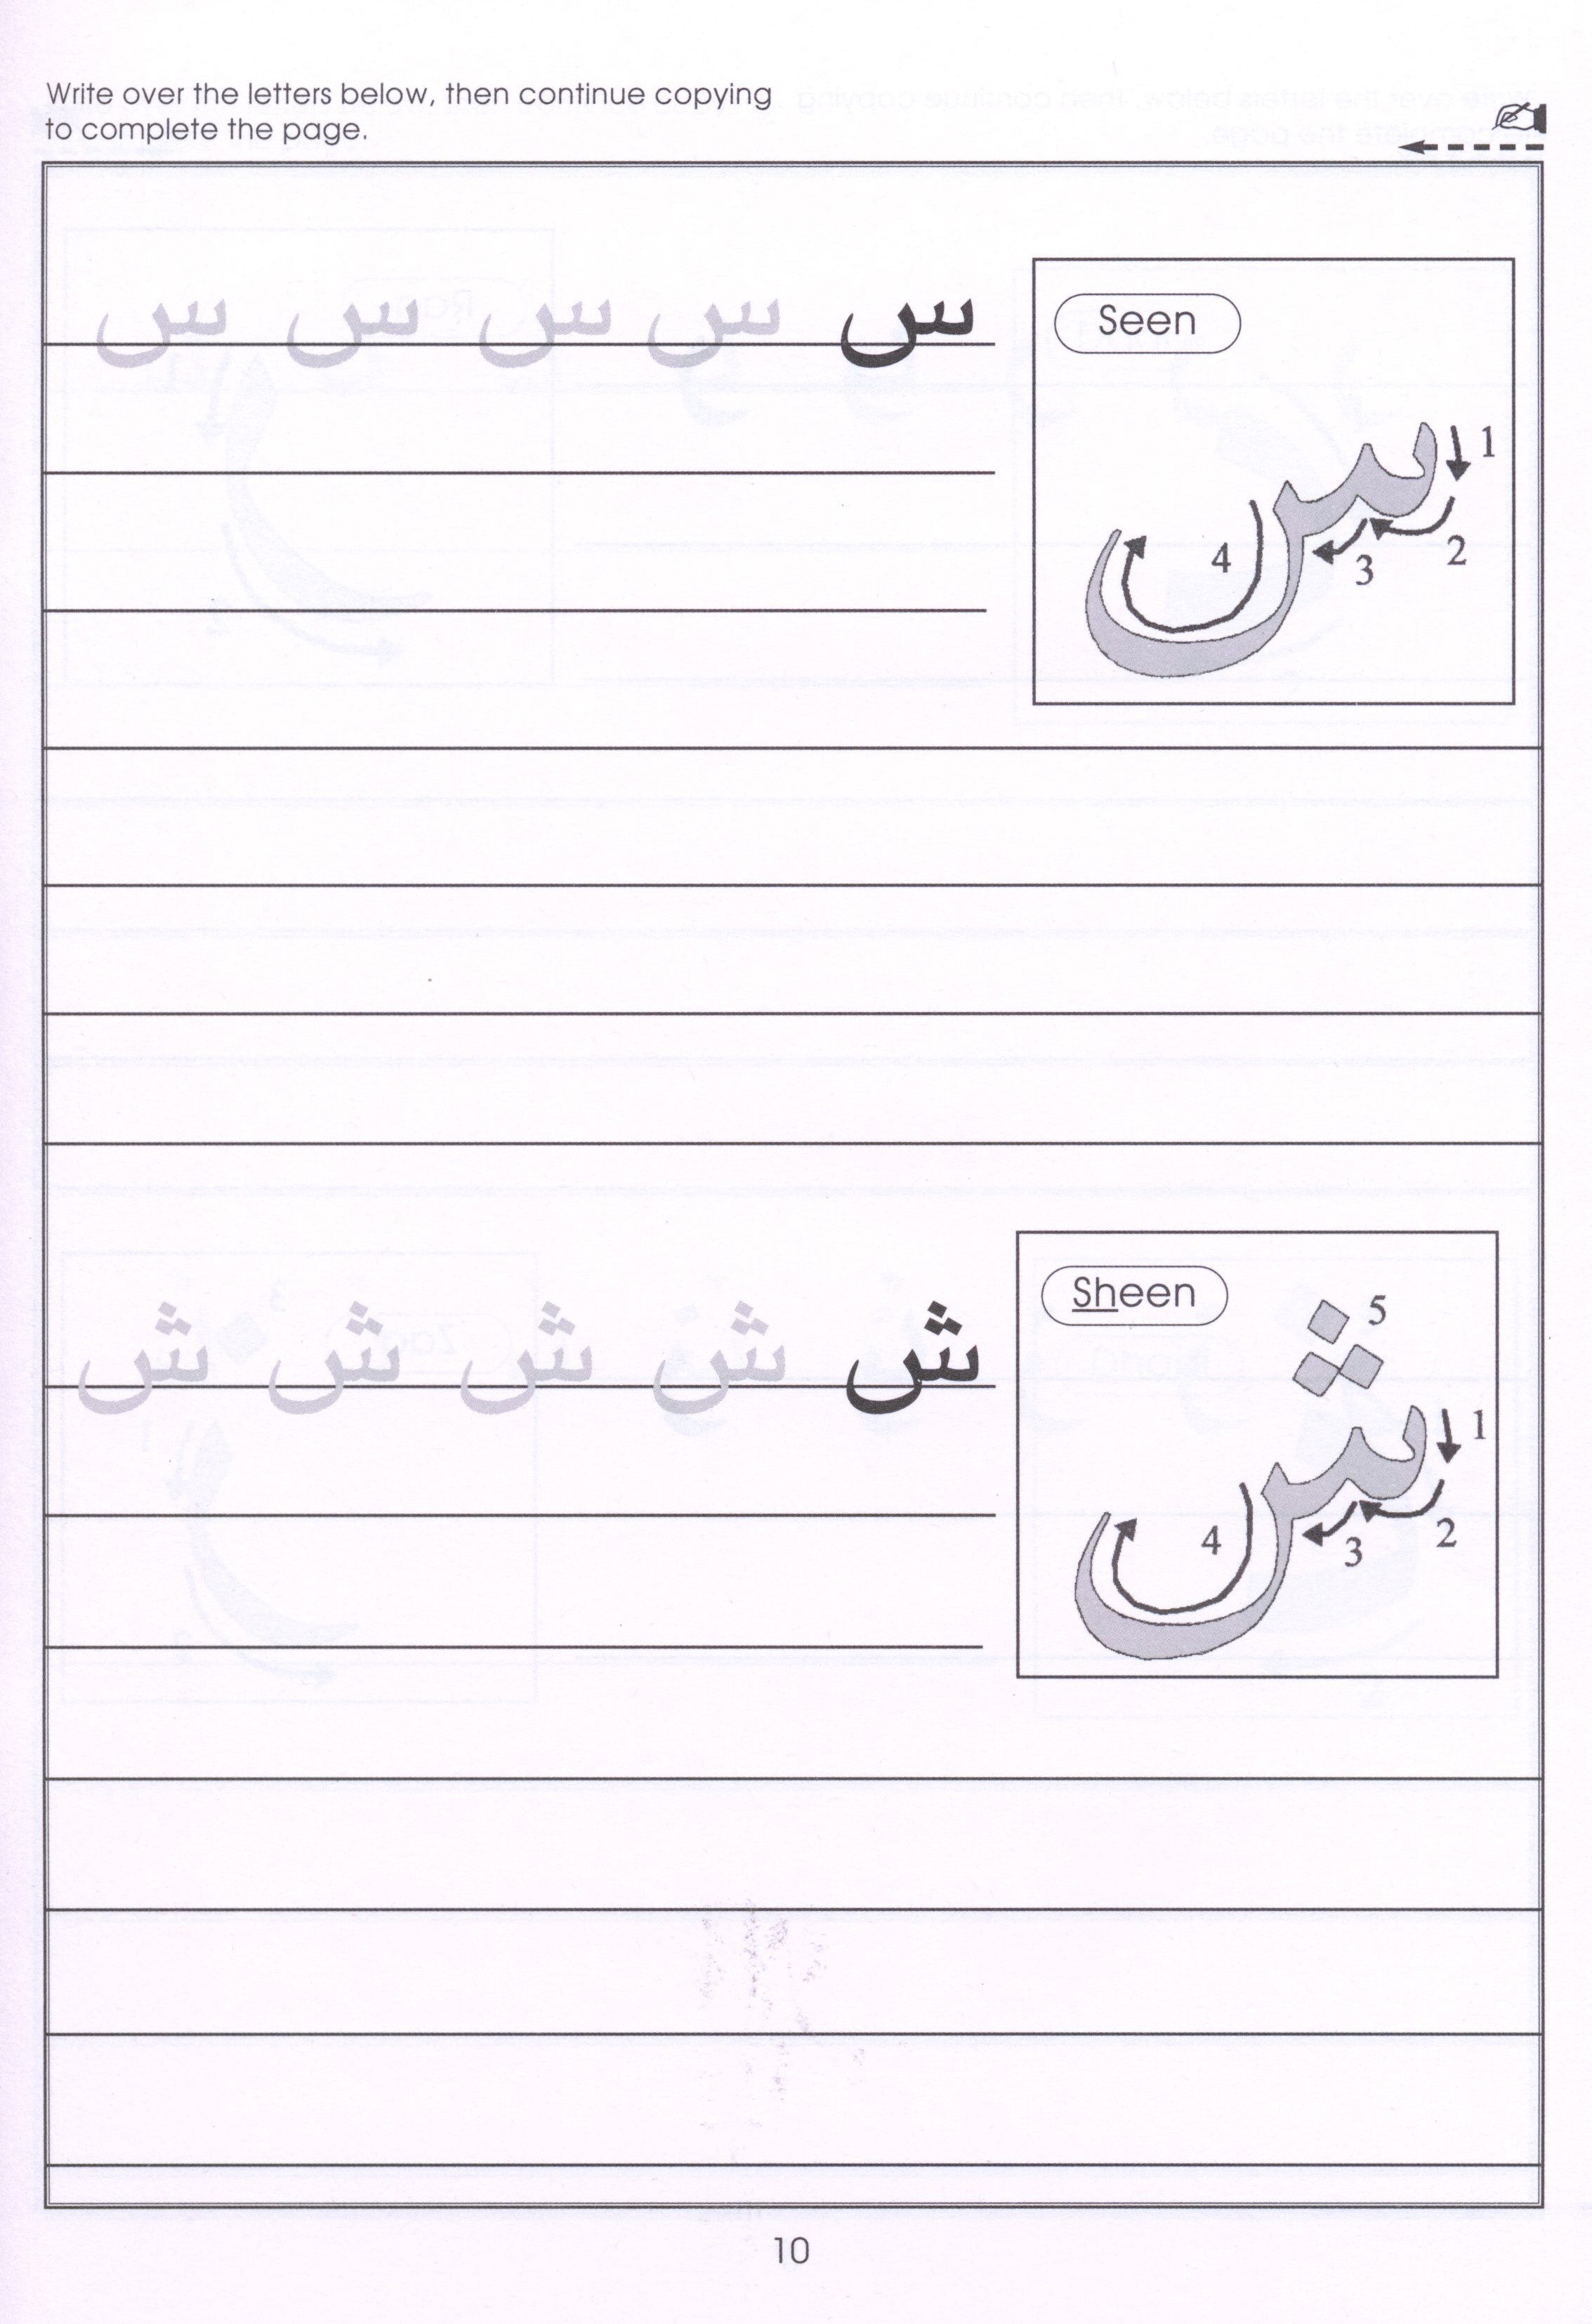 Write over the letters below, then continue copying
to complete the page.
Seen
س س س س س
1
2
3
4
Sheen
ش ش ش ش ش
5
1
2
3
4
10